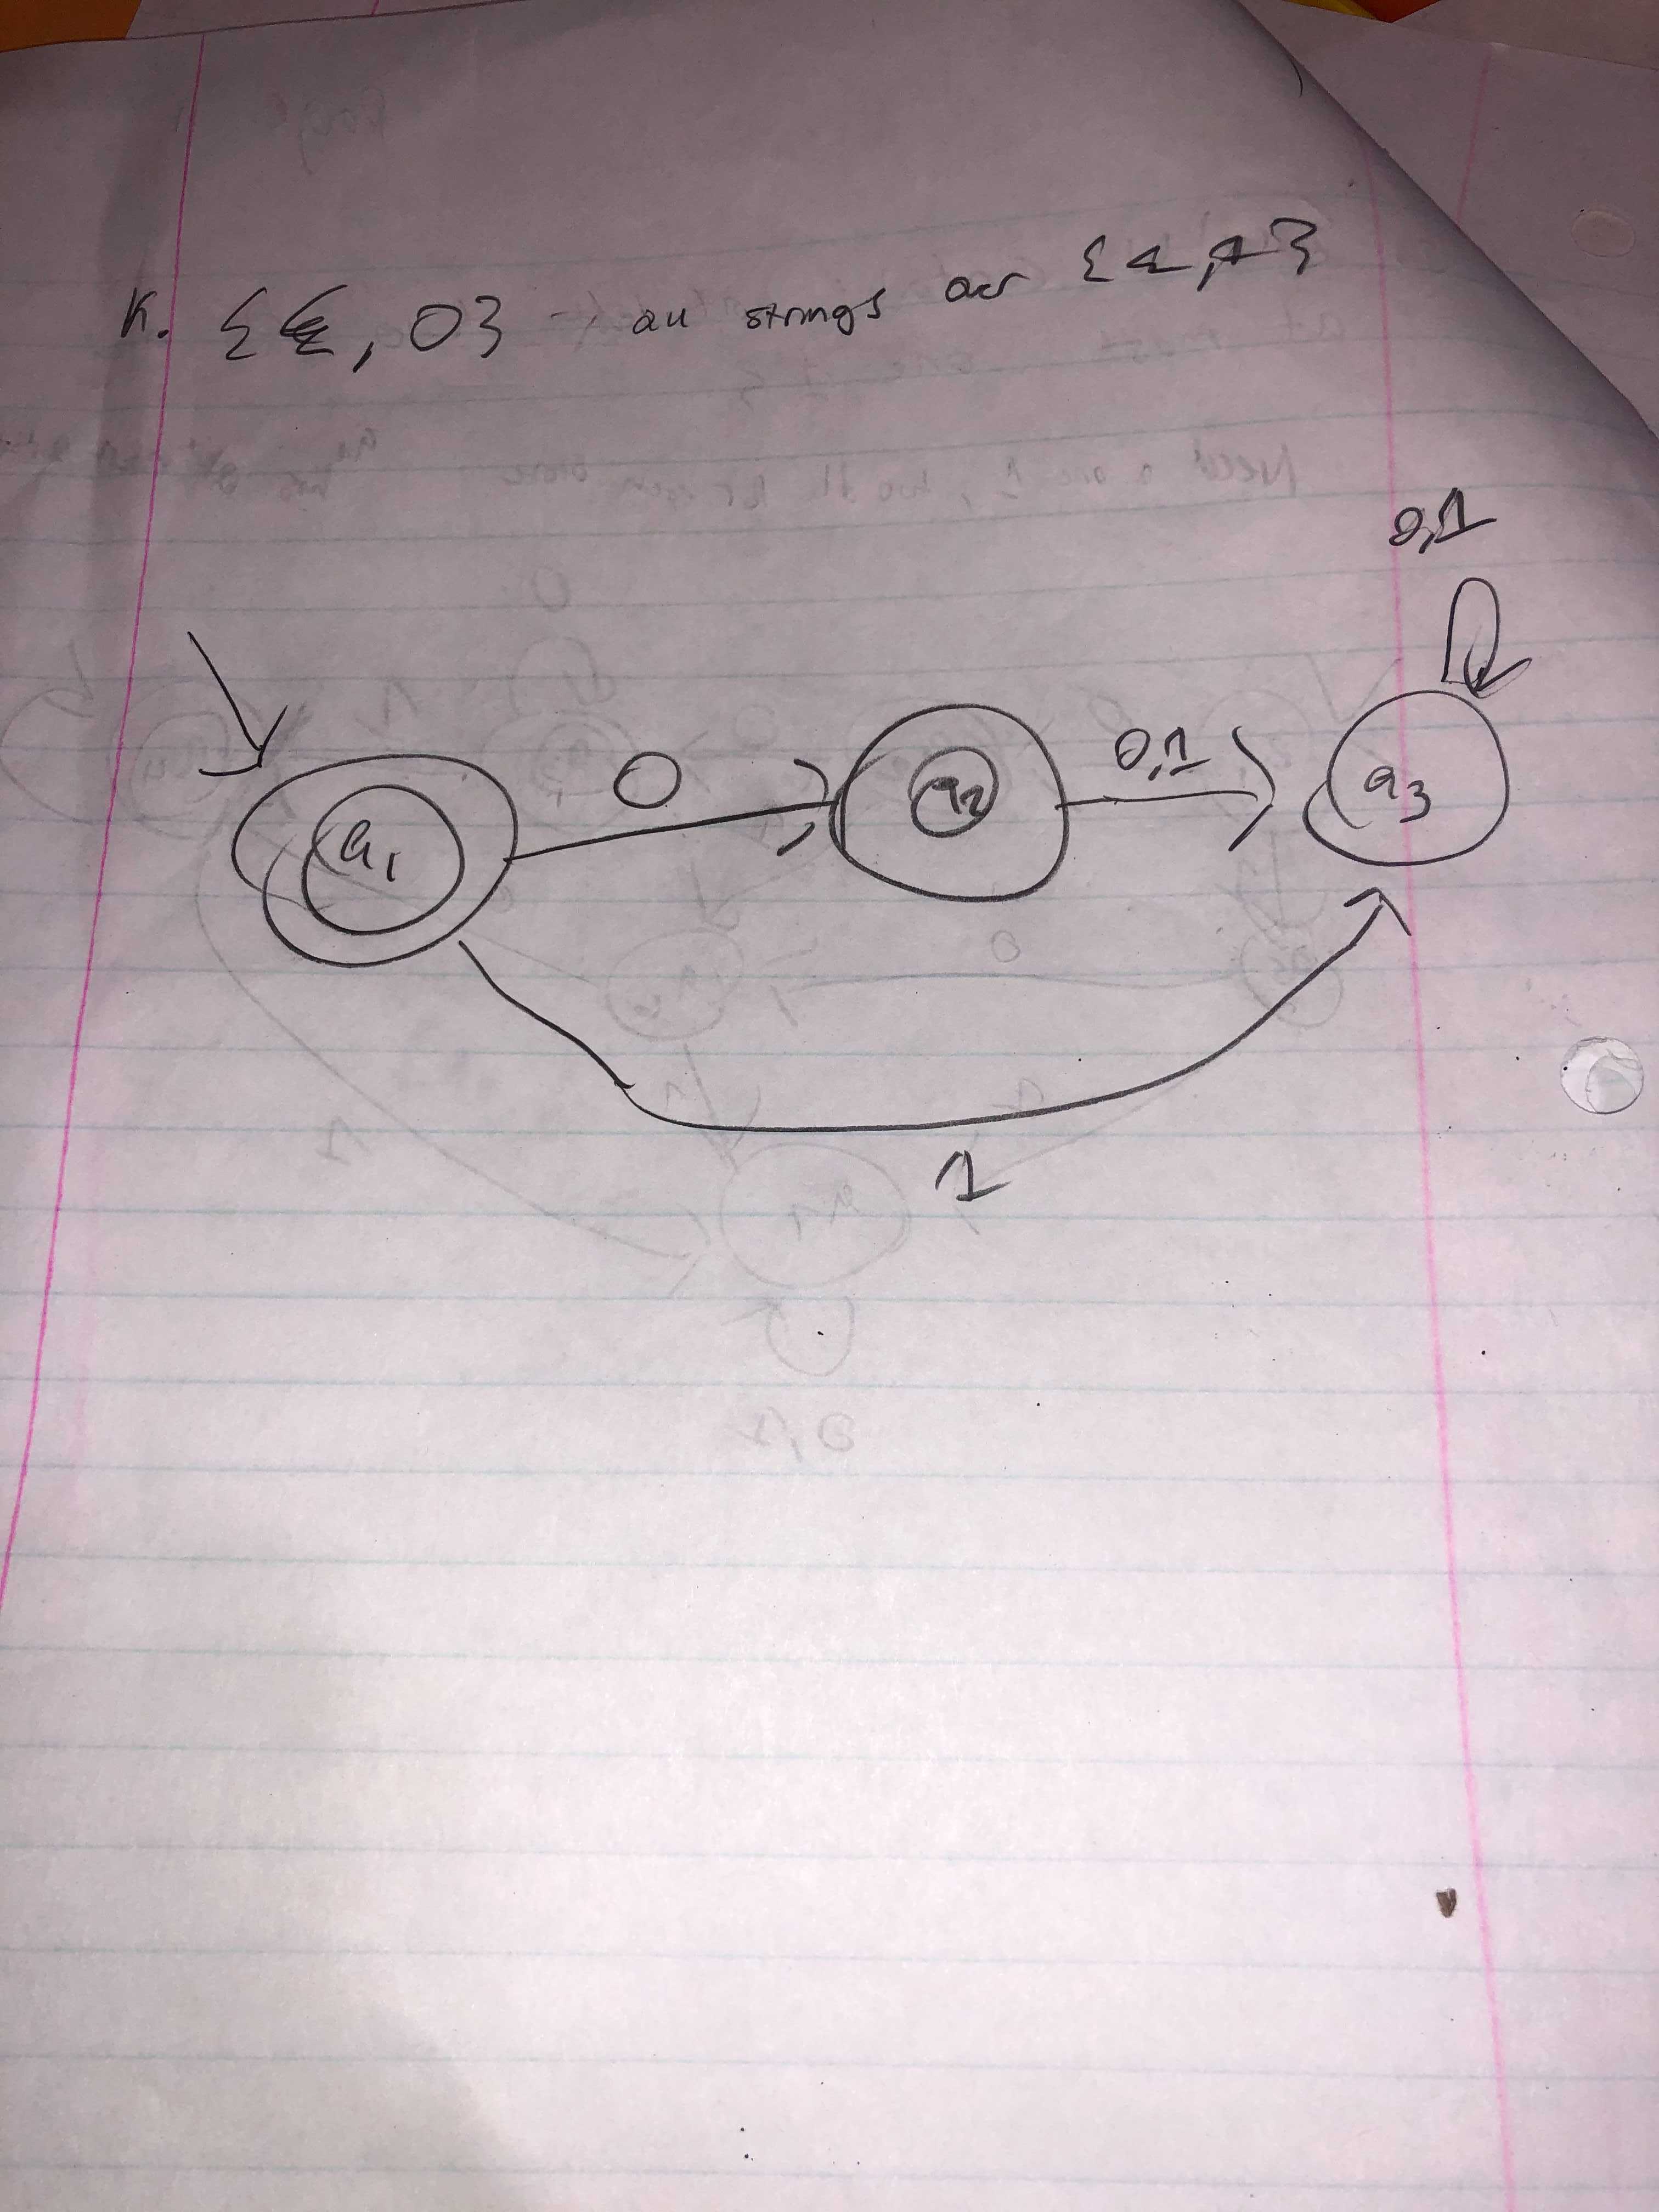 K. {ε, 0} → all strings over
0,1
0
0,1
q1
q2
q3
1